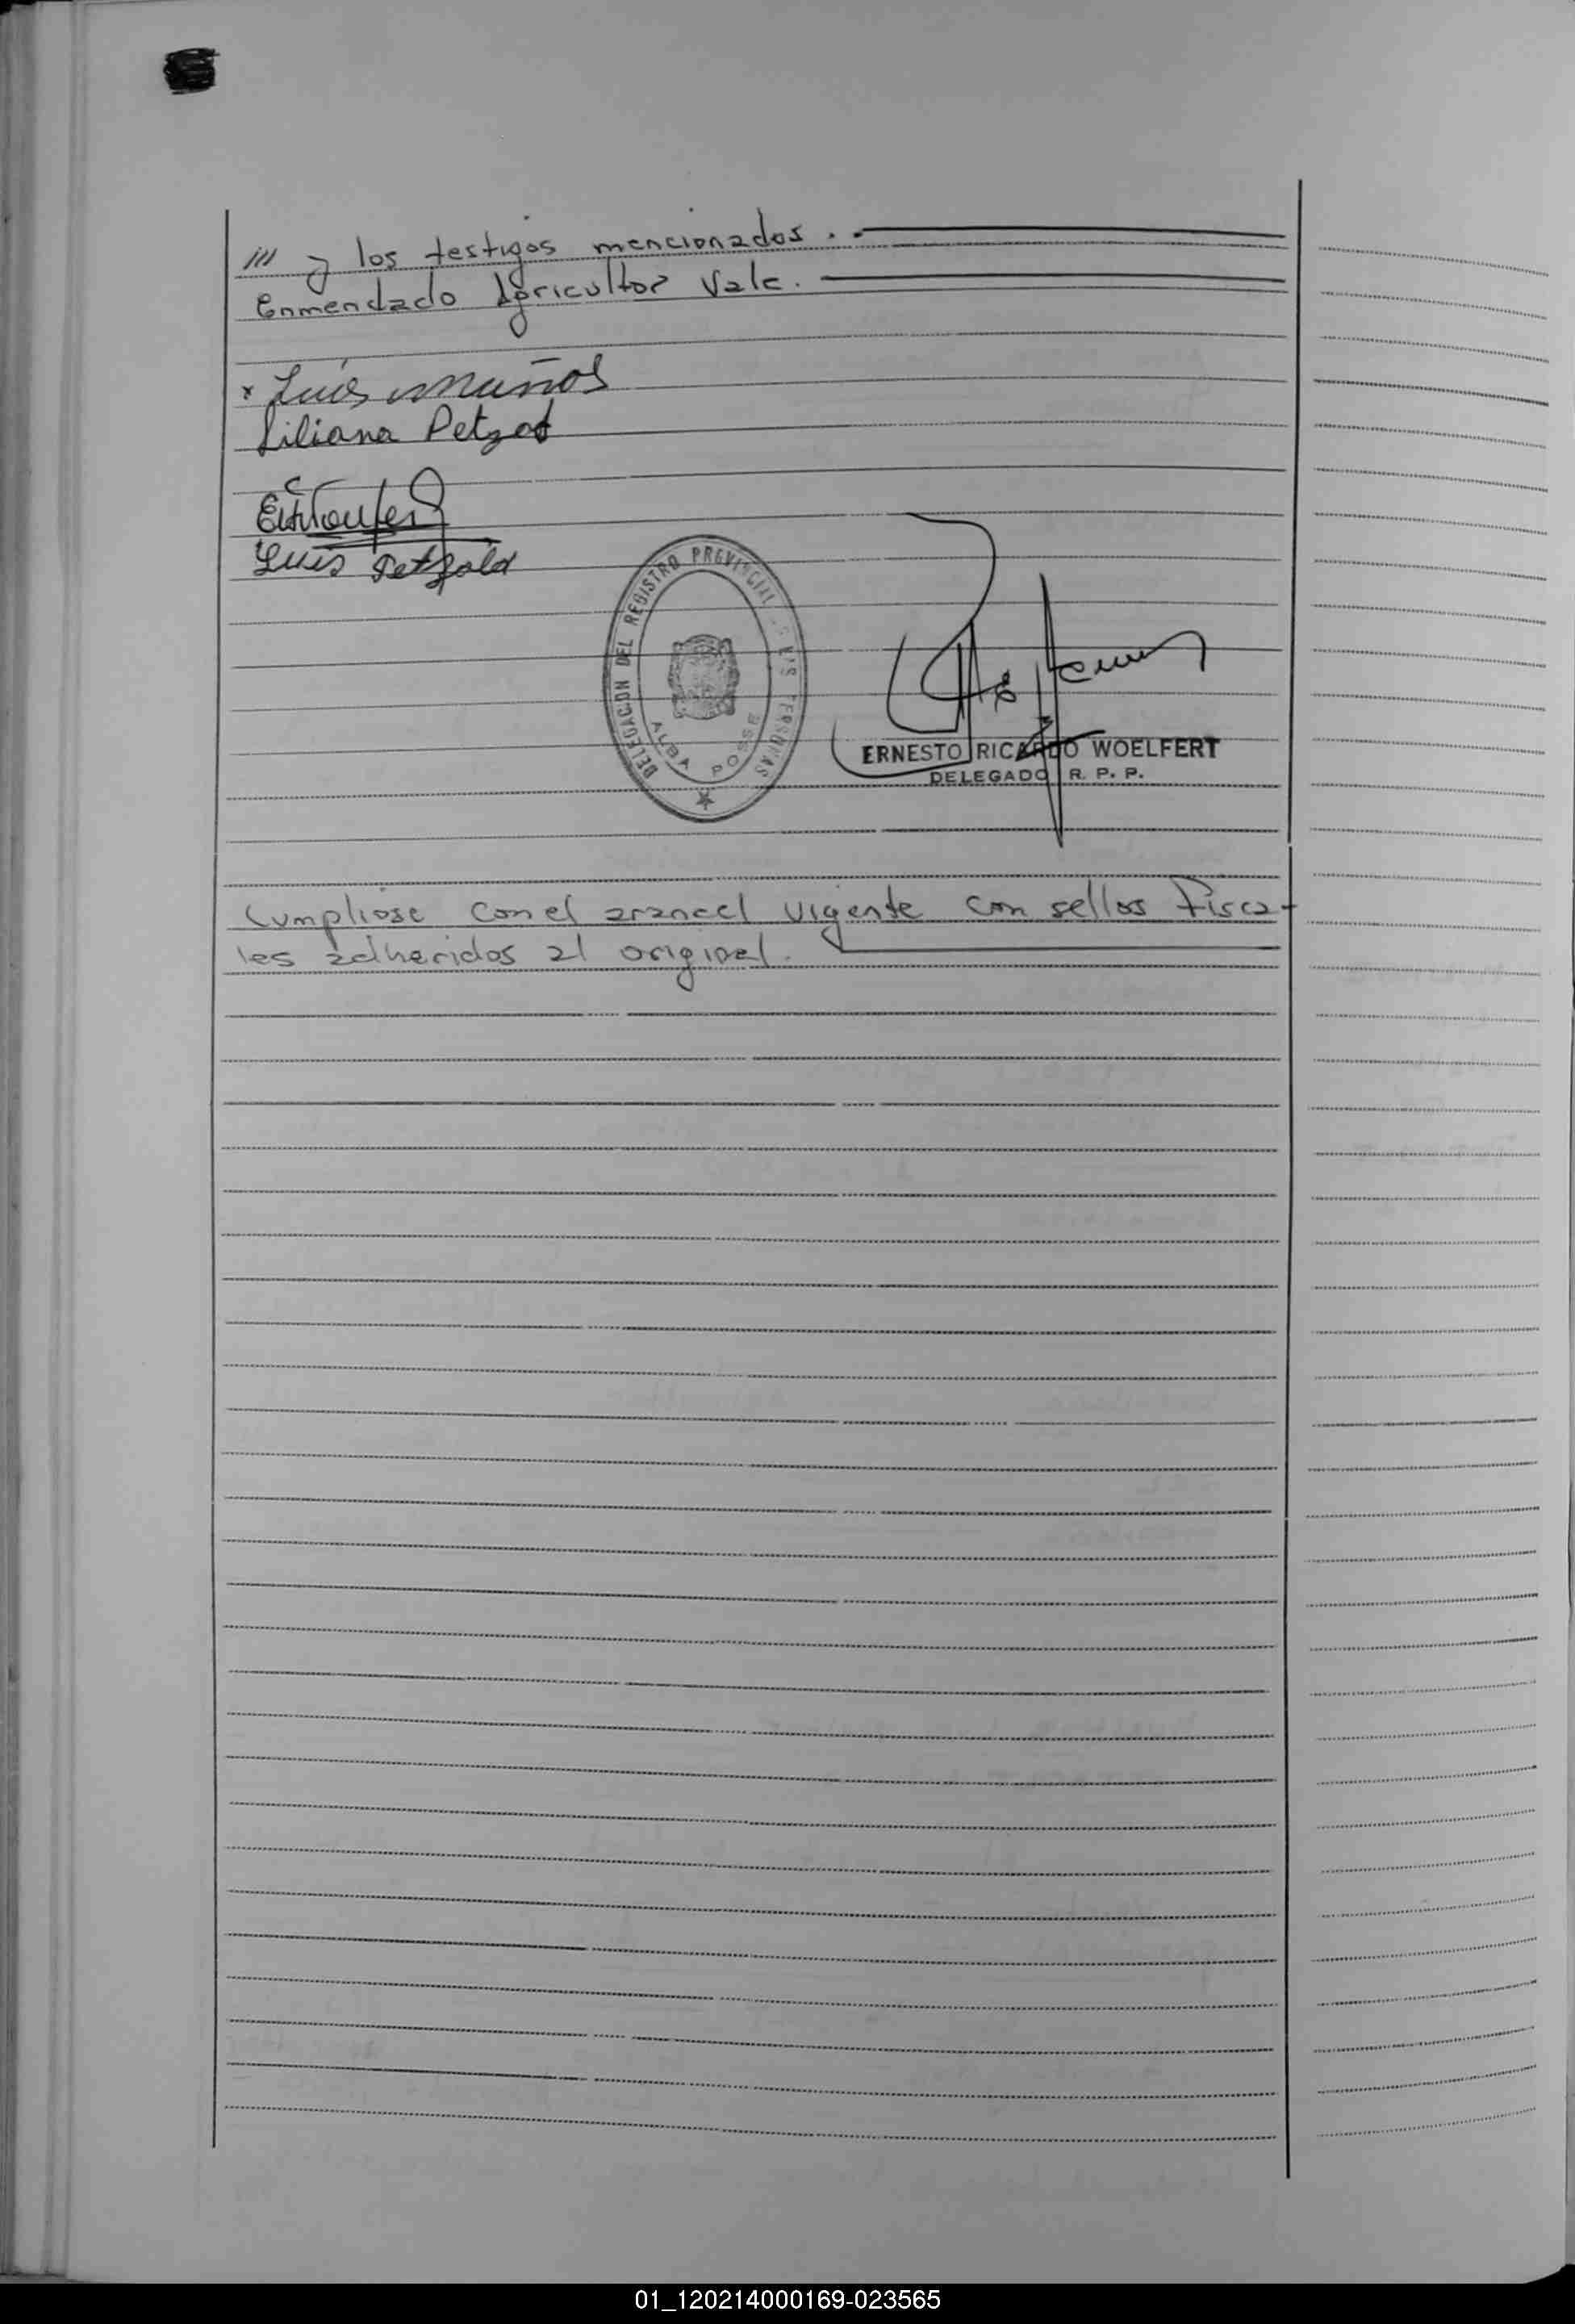 /// y los testigos mencionados . .
Enmendado Agricultor Vale.
x Luis Muños
Liliana Petzod
Luis Petzold
DELEGACION DEL REGISTRO PROVINCIAL PERSONAS
ALBA POSSE
ERNESTO RICARDO WOELFERT
DELEGADO R. P. P.
Cumpliose con el arancel vigente con sellos Fisca-
les adheridos al original.
01_120214000169-023565